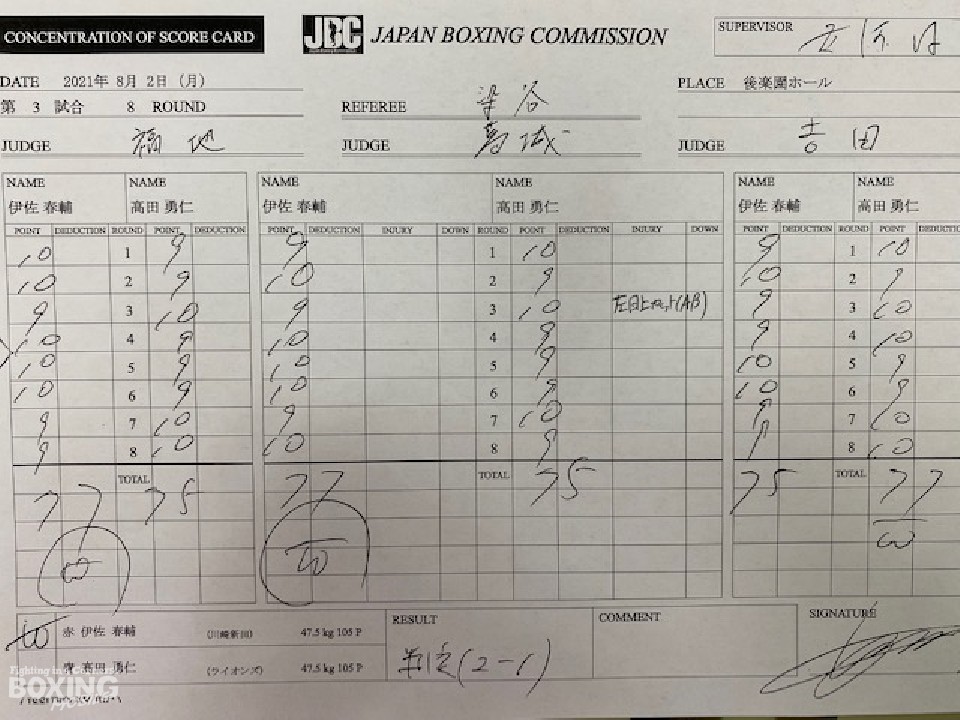 CONCENTRATION OF SCORE CARD
JBC JAPAN BOXING COMMISSION
SUPERVISOR
DATE 2021年 8月 2日 (月)
PLACE 後楽園ホール
第 3 試合 8 ROUND
REFEREE 染谷
JUDGE 福地
JUDGE 葛城
JUDGE 吉田
NAME NAME NAME NAME NAME NAME
伊佐 春輔 高田 勇仁 伊佐 春輔 高田 勇仁 伊佐 春輔 高田 勇仁
POINT DEDUCTION ROUND POINT DEDUCTION POINT DEDUCTION INJURY DOWN ROUND POINT DEDUCTION INJURY DOWN POINT DEDUCTION ROUND POINT
10 1 9 9 1 10 9 1 10
10 2 9 10 2 9 10 2 9
9 3 10 9 3 10 9 3 10
10 4 9 10 4 9 9 4 10
10 5 9 10 5 9 10 5 9
10 6 9 10 6 9 10 6 9
9 7 10 9 7 10 9 7 10
9 8 10 10 8 9 9 8 10
77 TOTAL 75 77 TOTAL 75 75 TOTAL 77
W W W
W 赤 伊佐 春輔 (川崎新田) 47.5 kg 105 P
青 高田 勇仁 (ライオンズ) 47.5 kg 105 P
RESULT
判定(2-1)
COMMENT
SIGNATURE
BOXING